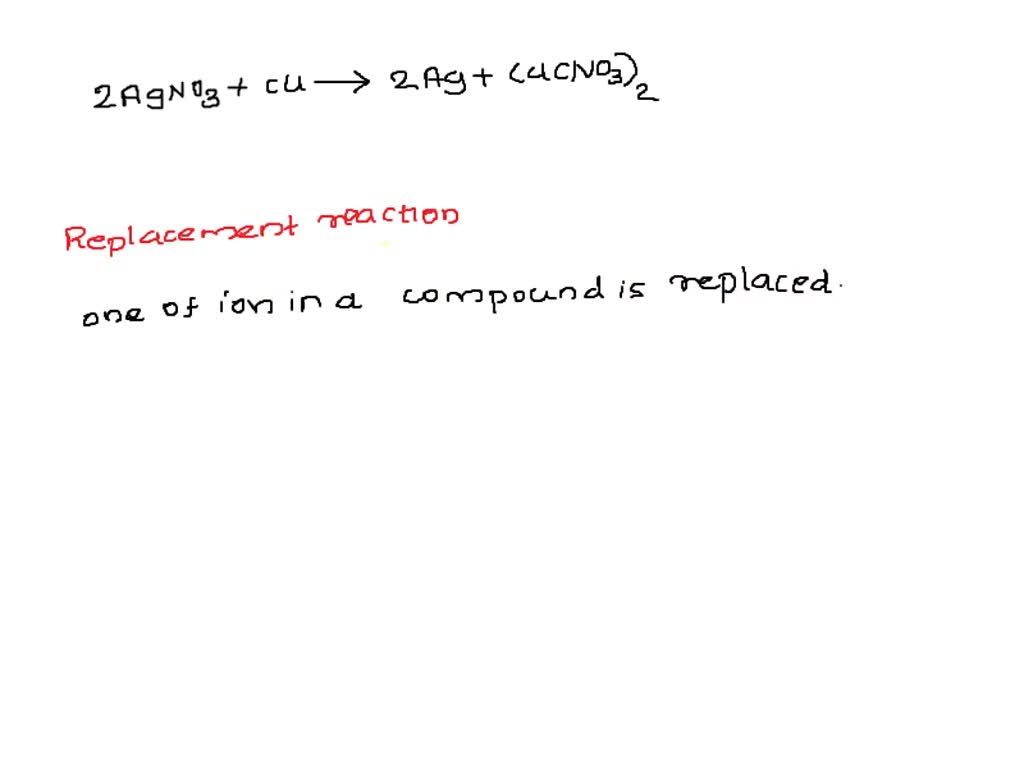 2AgNO3 + Cu → 2Ag + Cu(NO3)2
Replacement reaction
one of ion in a compound is replaced.